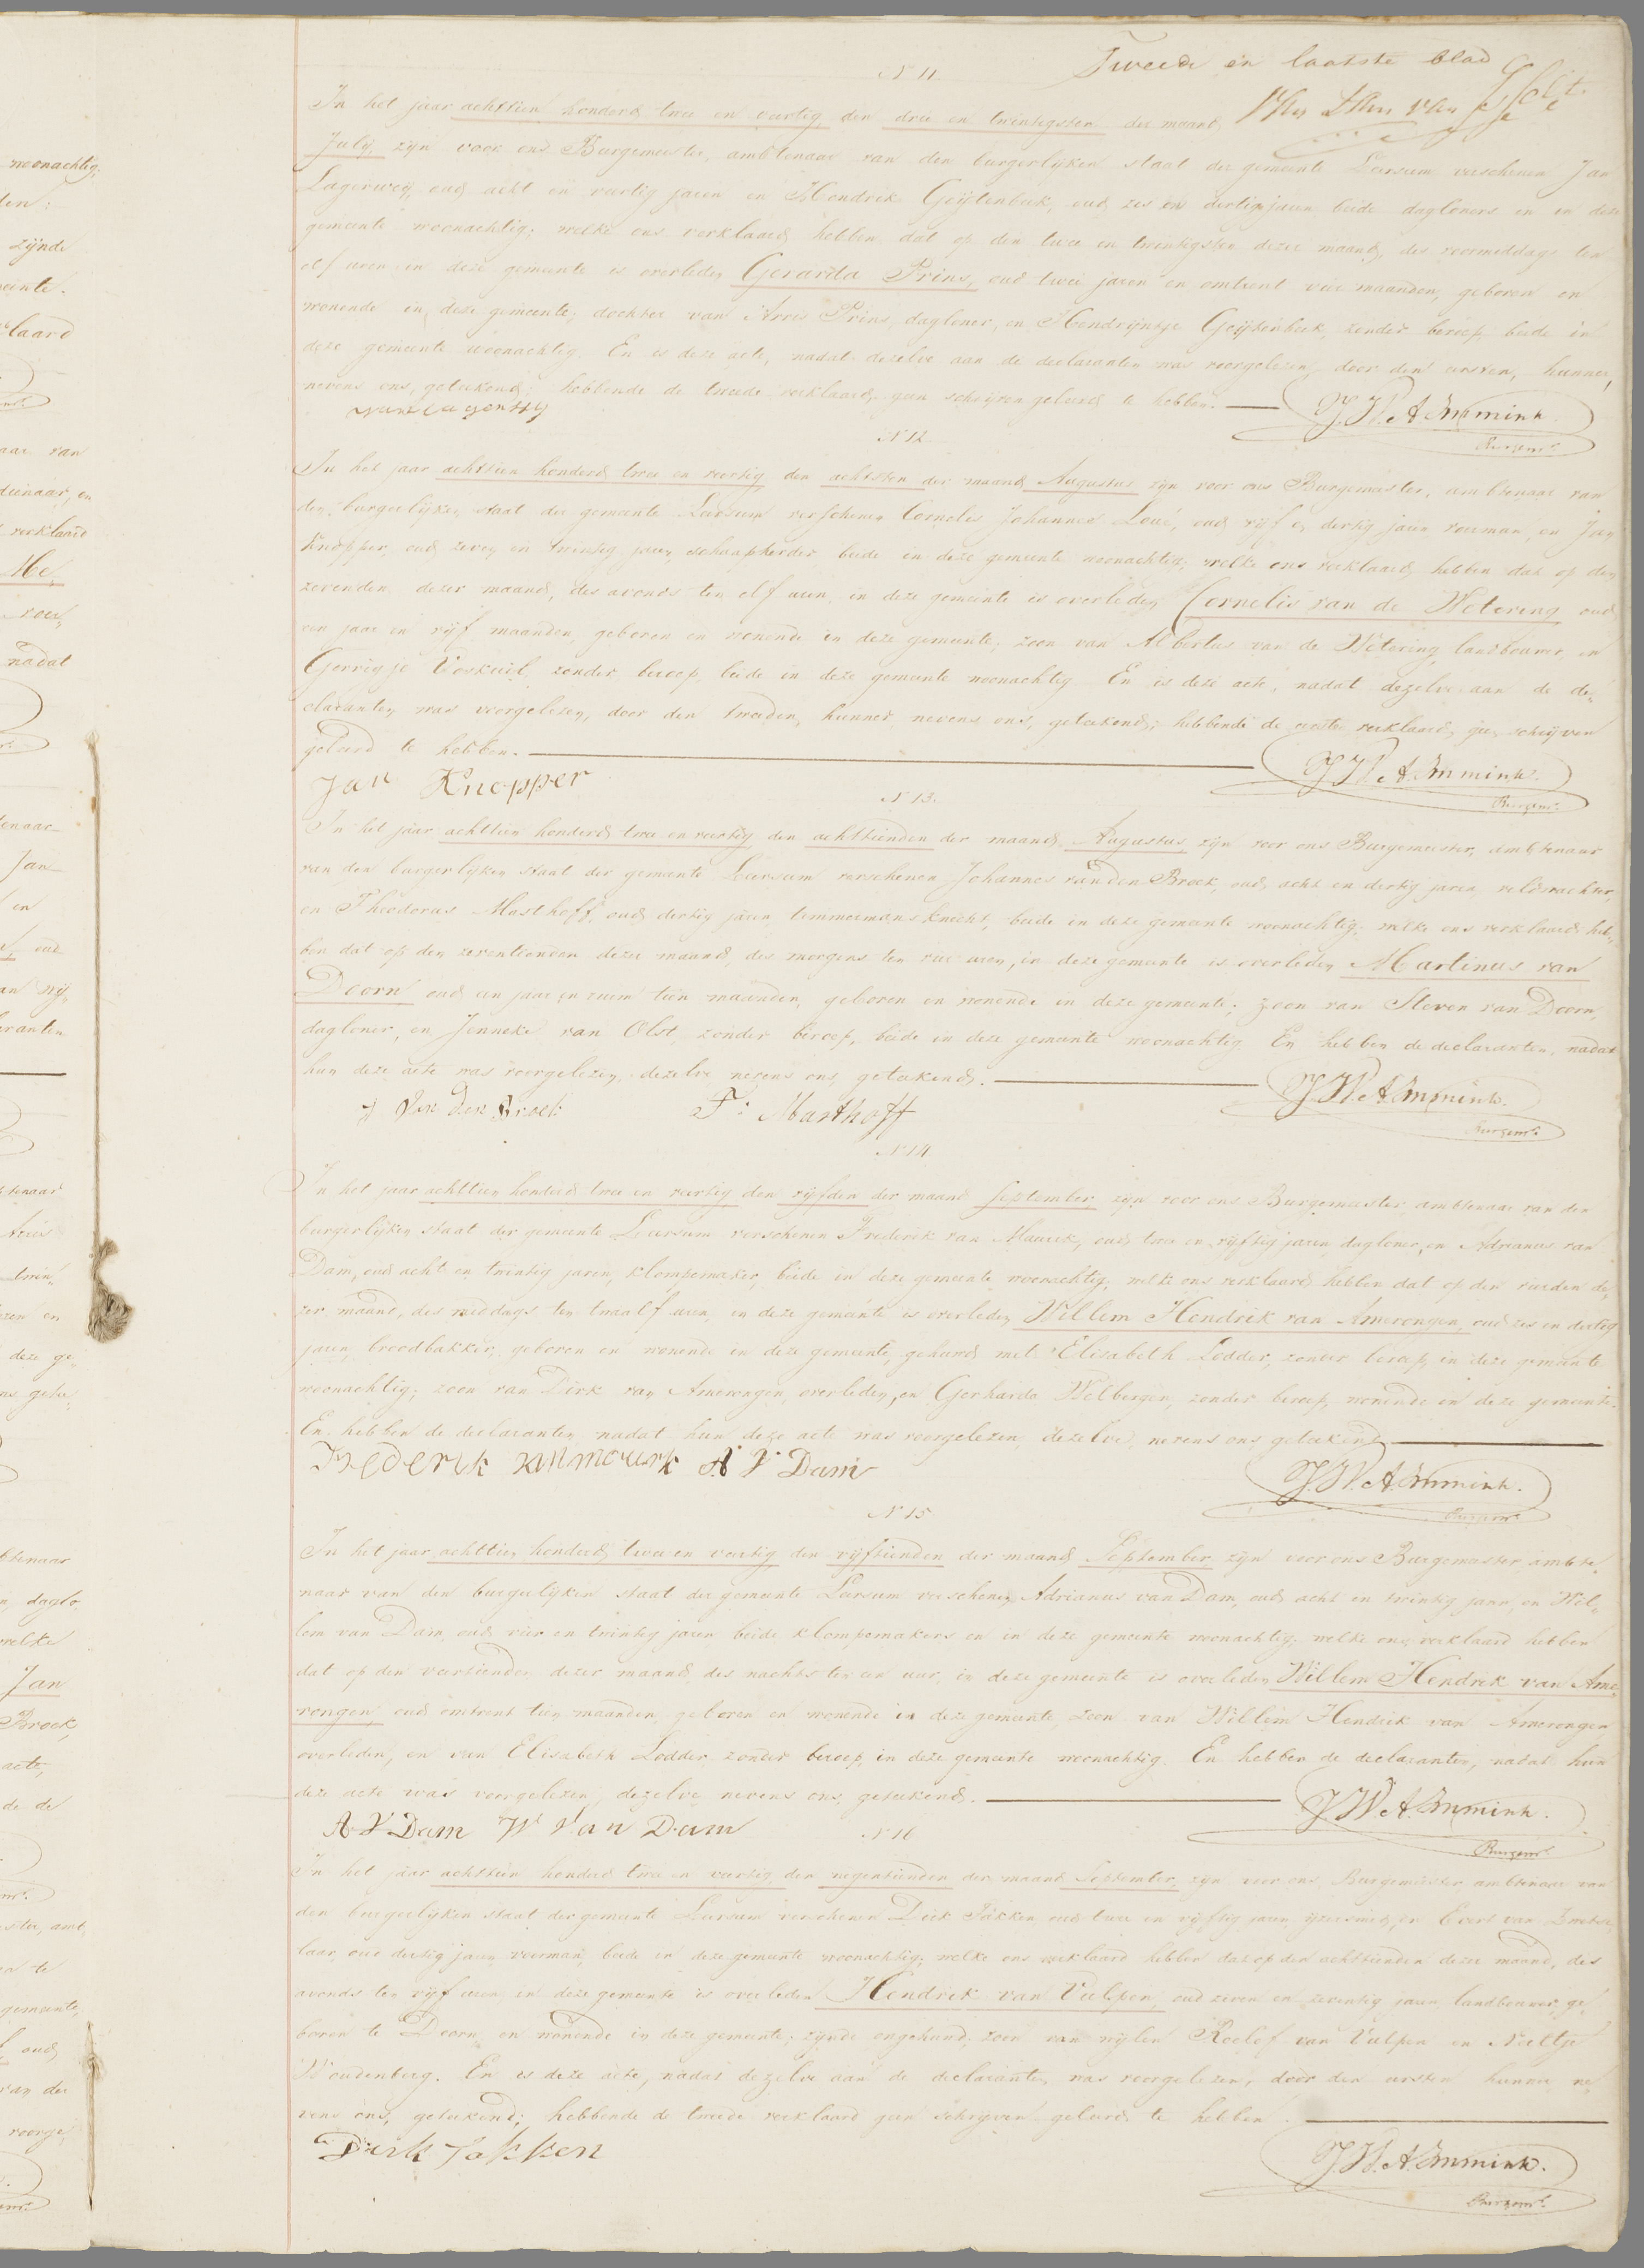 Tweede en laatste blad
N 11.
In het jaar achttien honderd twee en veertig den drie en twintigsten der maand
July, zijn voor ons Burgemeester, ambtenaar van den burgerlijken staat der gemeente Leersum verschenen Jan
Lagerweij, oud acht en veertig jaren en Hendrik Geijtenbeek, oud zes en dertig jaren, beide dagloners en in deze
gemeente woonachtig; welke ons verklaard hebben dat op den twee en twintigsten dezer maand, des voormiddags ten
elf uren in deze gemeente is overleden Gerarda Prins, oud twee jaren en omtrent vier maanden, geboren en
wonende in deze gemeente; dochter van Arris Prins, dagloner, en Hendrijntje Geijtenbeek, zonder beroep, beide in
deze gemeente woonachtig. En is deze acte, nadat dezelve aan de declaranten was voorgelezen, door den eersten, hunner,
nevens ons, geteekend; hebbende de tweede verklaard geen schrijven geleerd te hebben.
J. W. A. Immink.
Burgemr.
N 12.
In het jaar achttien honderd twee en veertig den achtsten der maand Augustus zijn voor ons Burgemeester, ambtenaar van
den burgerlijken staat der gemeente Leersum verschenen Cornelis Johannes Loué, oud vijf en dertig jaren, voerman, en Jan
Knopper, oud zeven en twintig jaren, schaapherder, beide in deze gemeente woonachtig; welke ons verklaard hebben dat op den
zevenden dezer maand, des avonds ten elf uren, in deze gemeente is overleden Cornelis van de Wetering oud
een jaar en vijf maanden, geboren en wonende in deze gemeente; zoon van Albertus van de Wetering, landbouwer, en
Gerrigje Voskuil, zonder beroep, beide in deze gemeente woonachtig. En is deze acte, nadat dezelve aan de de„
claranten was voorgelezen, door den tweeden, hunner nevens ons, geteekend; hebbende de eerste verklaard geen schrijven
geleerd te hebben.
J. W. A. Immink.
Burgemr.
Jan Knopper
N 13.
In het jaar achttien honderd twee en veertig den achttienden der maand Augustus zijn voor ons Burgemeester, ambtenaar
van den burgerlijken staat der gemeente Leersum verschenen Johannes van den Broek, oud acht en dertig jaren, veldwachter,
en Theodorus Masthoff, oud dertig jaren, timmermansknecht, beide in deze gemeente woonachtig; welke ons verklaard heb„
ben dat op den zeventienden dezer maand, des morgens ten vier uren, in deze gemeente is overleden Martinus van
Doorn oud een jaar en ruim tien maanden, geboren en wonende in deze gemeente; zoon van Steven van Doorn,
dagloner, en Jenneke van Olst, zonder beroep, beide in deze gemeente woonachtig. En hebben de declaranten, nadat
hun deze acte was voorgelezen, dezelve, nevens ons, geteekend.
J. W. A. Immink.
Burgemr.
J Van Den Broek T: Masthoff
N 14
In het jaar achttien honderd twee en veertig den vijfden der maand September, zijn voor ons Burgemeester, ambtenaar van den
burgerlijken staat der gemeente Leersum verschenen Frederik van Maurik, oud twee en vijftig jaren, dagloner, en Adrianus van
Dam, oud acht en twintig jaren, klompemaker, beide in deze gemeente woonachtig; welke ons verklaard hebben dat op den vierden de„
zer maand, des middags ten twaalf uren, in deze gemeente is overleden Willem Hendrik van Amerongen, oud zes en dertig
jaren, broodbakker, geboren en wonende in deze gemeente, gehuwd met Elisabeth Lodder, zonder beroep, in deze gemeente
woonachtig; zoon van Dirk van Amerongen, overleden, en Gerharda Welbergen, zonder beroep, wonende in deze gemeente.
En hebben de declaranten, nadat hun deze acte was voorgelezen, dezelve, nevens ons, geteekend
Frederik van maurk A V Dam
J. W. A. Immink.
Burgemr.
N 15
In het jaar achttien honderd twee en veertig den vijftienden der maand September, zijn voor ons Burgemeester, ambte„
naar van den burgerlijken staat der gemeente Leersum verschenen Adrianus van Dam, oud acht en twintig jaren, en Wil„
lem van Dam, oud vier en twintig jaren, beide klompemakers en in deze gemeente woonachtig; welke ons verklaard hebben
dat op den veertienden dezer maand, des nachts ten een uur, in deze gemeente is overleden Willem Hendrik van Ame„
rongen, oud omtrent tien maanden, geboren en wonende in deze gemeente, zoon van Willem Hendrik van Amerongen
overleden, en van Elisabeth Lodder, zonder beroep, in deze gemeente woonachtig. En hebben de declaranten, nadat hun
deze acte was voorgelezen, dezelve, nevens ons, geteekend.
J. W. A. Immink.
Burgemr.
A V Dam W Van Dam
N 16
In het jaar achttien honderd twee en veertig den negentienden der maand September, zijn voor ons, Burgemeester, ambtenaar van
den burgerlijken staat der gemeente Leersum verschenen Dirk Takken oud twee en vijftig jaren, ijzersmid, en Evert van
laar, oud dertig jaren, voerman, beide in deze gemeente woonachtig; welke ons verklaard hebben dat op den achttienden dezer maand, des
avonds ten vijf uren, in deze gemeente is overleden Hendrik van Vulpen, oud zeven en zeventig jaren, landbouwer, ge„
boren te Doorn, en wonende in deze gemeente; zijnde ongehuwd; zoon van wijlen Roelof van Vulpen en Neeltje
Woudenberg. En is deze acte, nadat dezelve aan de declaranten was voorgelezen, door den eersten hunner ne„
vens ons, geteekend; hebbende de tweede verklaard geen schrijven geleerd te hebben.
Dirk Takken
J. W. A. Immink.
Burgemr.